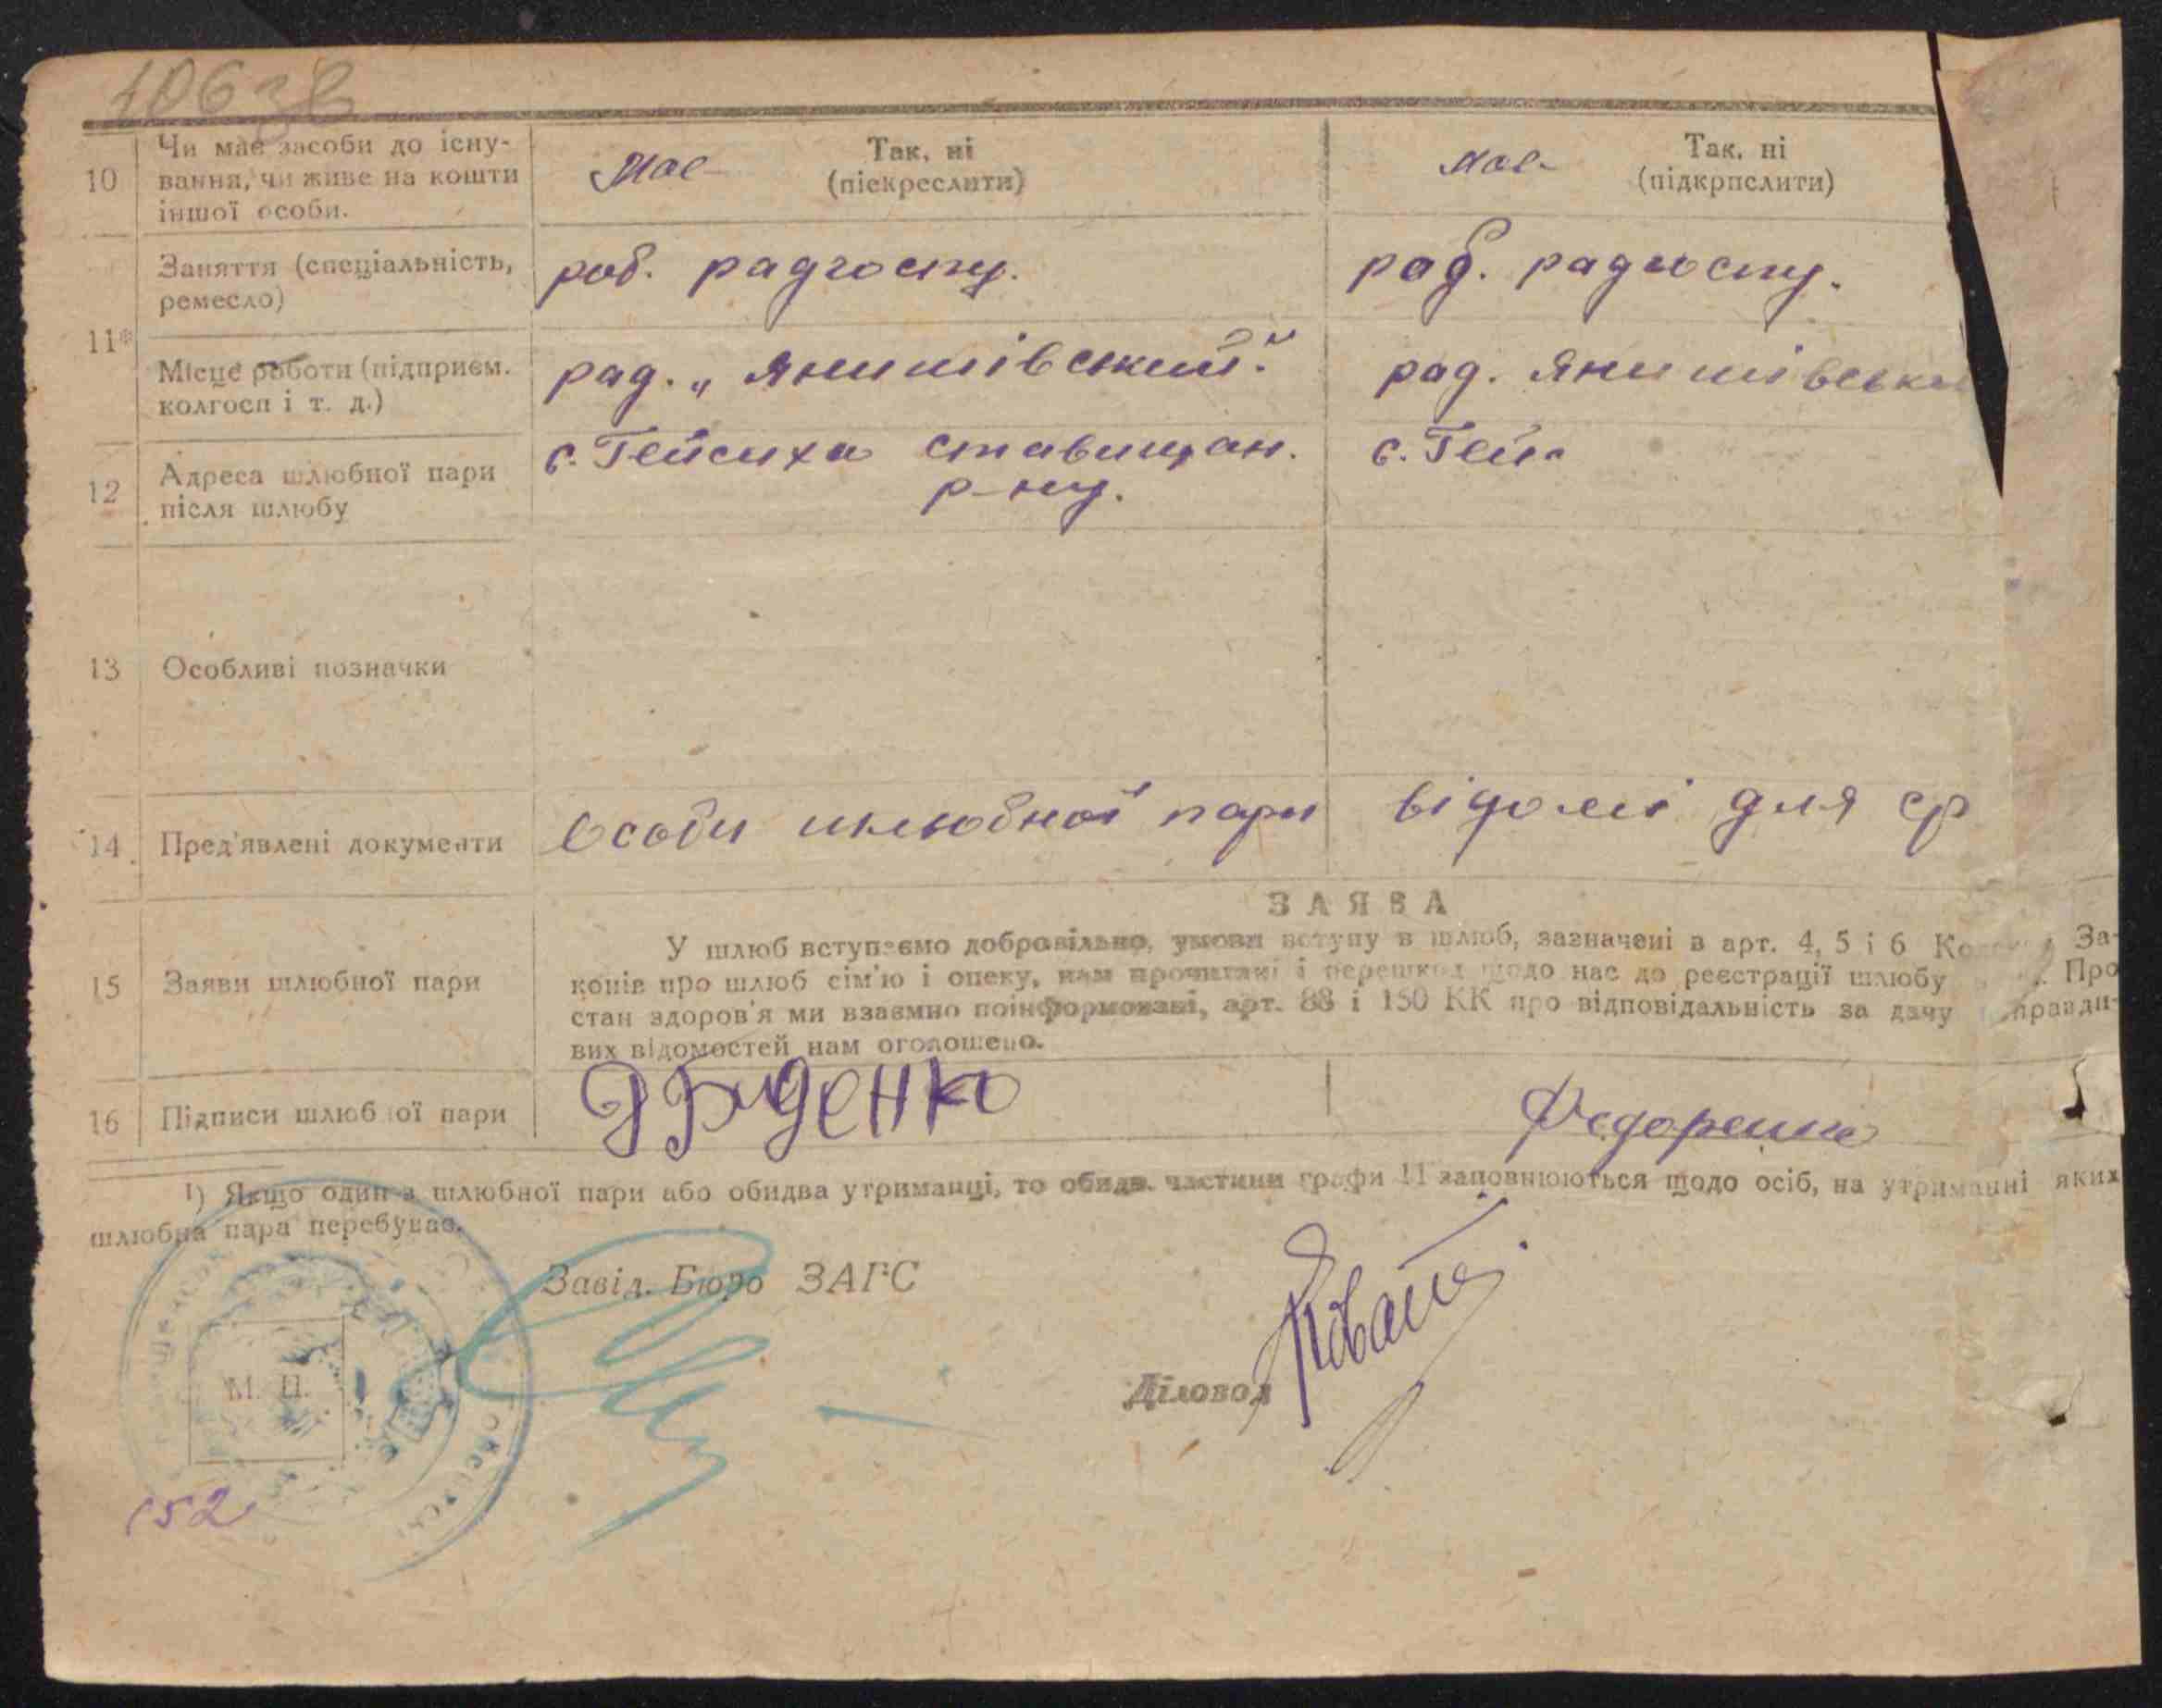 1063в
10 Чи має засоби до існу- Має Так, ні має Так, ні
вання, чи живе на кошти (піскреслити) (підкрпслити)
іншої особи.
11* Заняття (спеціальність, роб. радгоспу. роб. радгоспу.
ремесло)
Місце роботи (підприєм. рад. „Янишівський." рад. Янишівськ
колгосп і т. д.)
12 Адреса шлюбної пари с. Гейсиха Ставищан. с. Гей
після шлюбу р-ну.
13 Особливі позначки
14 Пред'явлені документи Особи шлюбної пари відомі для ср
ЗАЯВА
15 Заяви шлюбної пари
У шлюб вступаємо добровільно, умови вступу в шлюб, зазначені в арт. 4, 5 і 6 За-
конів про шлюб сім'ю і опеку, нам прочитані і перешкод щодо нас до реєстрації шлюбу Про
стан здоров'я ми взаємно поінформовані, арт. 88 і 150 КК про відповідальність за дачу неправди-
вих відомостей нам оголошено.
16 Підписи шлюбної пари Д Буденко Федоренко
1) Якщо один з шлюбної пари або обидва утриманці, то обидв. частини графи 11 заповнюються щодо осіб, на утриманні яких
шлюбна пара перебуває.
Завід. Бюро ЗАГС
М. П.
Діловод
152